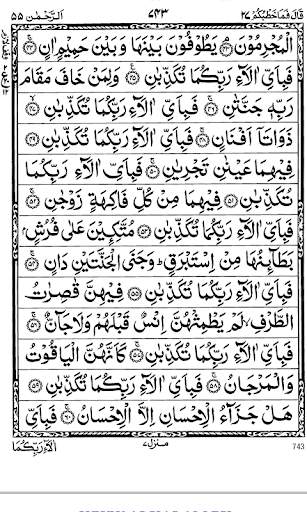 قَالَ فَمَا خَطْبُكُمْ ٢٧ ٧٤٣ اَلرَّحْمٰن ٥٥
الْمُجْرِمُوْنَ ﴿٤٣﴾ يَطُوْفُوْنَ بَيْنَهَا وَبَيْنَ حَمِيْمٍ اٰنٍ ﴿٤٤﴾
فَبِاَيِّ اٰلَآءِ رَبِّكُمَا تُكَذِّبٰنِ ﴿٤٥﴾ وَلِمَنْ خَافَ مَقَامَ
رَبِّهٖ جَنَّتٰنِ ﴿٤٦﴾ فَبِاَيِّ اٰلَآءِ رَبِّكُمَا تُكَذِّبٰنِ ﴿٤٧﴾
ذَوَاتَآ اَفْنَانٍ ﴿٤٨﴾ فَبِاَيِّ اٰلَآءِ رَبِّكُمَا تُكَذِّبٰنِ ﴿٤٩﴾
فِيْهِمَا عَيْنٰنِ تَجْرِيٰنِ ﴿٥٠﴾ فَبِاَيِّ اٰلَآءِ رَبِّكُمَا
تُكَذِّبٰنِ ﴿٥١﴾ فِيْهِمَا مِنْ كُلِّ فَاكِهَةٍ زَوْجٰنِ ﴿٥٢﴾
فَبِاَيِّ اٰلَآءِ رَبِّكُمَا تُكَذِّبٰنِ ﴿٥٣﴾ مُتَّكِـِٕيْنَ عَلٰى فُرُشٍۭ
بَطَآئِنُهَا مِنْ اِسْتَبْرَقٍ ؕ وَجَنَا الْجَنَّتَيْنِ دَانٍ ﴿٥٤﴾
فَبِاَيِّ اٰلَآءِ رَبِّكُمَا تُكَذِّبٰنِ ﴿٥٥﴾ فِيْهِنَّ قٰصِرٰتُ
الطَّرْفِ ۙ لَمْ يَطْمِثْهُنَّ اِنْسٌ قَبْلَهُمْ وَلَا جَآنٌّ ﴿٥٦﴾
فَبِاَيِّ اٰلَآءِ رَبِّكُمَا تُكَذِّبٰنِ ﴿٥٧﴾ كَاَنَّهُنَّ الْيَاقُوْتُ
وَالْمَرْجَانُ ﴿٥٨﴾ فَبِاَيِّ اٰلَآءِ رَبِّكُمَا تُكَذِّبٰنِ ﴿٥٩﴾
هَلْ جَزَآءُ الْاِحْسَانِ اِلَّا الْاِحْسَانُ ﴿٦٠﴾ فَبِاَيِّ
743 منزل٧ اٰلَآءِ رَبِّكُمَا